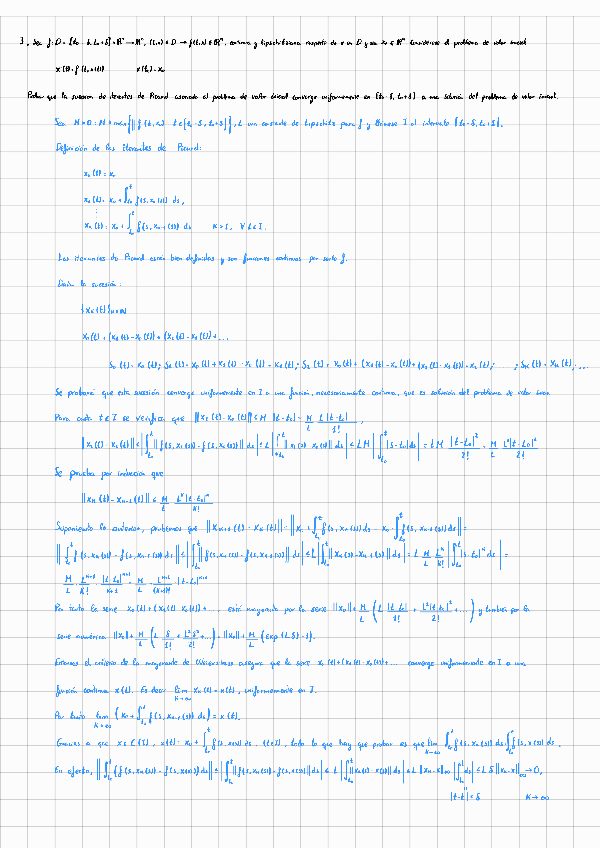 3. Sea f: D = [t₀ - δ, t₀ + δ] × ℝⁿ → ℝⁿ, (t,x) ∈ D → f(t,x) ∈ ℝⁿ, continua y lipschitziana respecto de x en D y sea x₀ ∈ ℝⁿ. Considérese el problema de valor inicial
x'(t) = f(t, x(t))    x(t₀) = x₀
Probar que la sucesión de iterantes de Picard asociada al problema de valor inicial converge uniformemente en [t₀ - δ, t₀ + δ] a una solución del problema de valor inicial.
Sea M > 0 : M = máx{‖f(t, x₀)‖ t ∈ [t₀ - δ, t₀ + δ]}, L una constante de Lipschitz para f y llámese I al intervalo [t₀ - δ, t₀ + δ].
Definición de las iterantes de Picard:
x₀(t) = x₀
x₁(t) = x₀ + ∫_{t₀}^{t} f(s, x₀(s)) ds,
⋮
x_k(t) = x₀ + ∫_{t₀}^{t} f(s, x_{k-1}(s)) ds    k > 1, ∀ t ∈ I.
Las iterantes de Picard están bien definidas y son funciones continuas por serlo f.
la sucesión:
{x_k(t)}_{k∈ℕ}
x₀(t) + (x₁(t) - x₀(t)) + (x₂(t) - x₁(t)) + ...
S₀(t) = x₀(t); S₁(t) = x₀(t) + x₁(t) - x₀(t) = x₁(t); S₂(t) = x₀(t) + (x₁(t) - x₀(t)) + (x₂(t) - x₁(t)) = x₂(t); ... ; S_k(t) = x_k(t); ...
Se probará que esta sucesión converge uniformemente en I a una función, necesariamente continua, que es solución del problema de valor
Para cada t ∈ I se verifica que ‖x₁(t) - x₀(t)‖ ≤ M |t - t₀| = M/L · L|t - t₀|/1! ,
‖x₂(t) - x₁(t)‖ ≤ |∫_{t₀}^{t} ‖f(s, x₁(s)) - f(s, x₀(s))‖ ds| ≤ L |∫_{t₀}^{t} ‖x₁(s) - x₀(s)‖ ds| ≤ LM |∫_{t₀}^{t} |s - t₀| ds| = LM |t - t₀|²/2! = M/L · L²|t - t₀|²/2!
Se prueba por inducción que
‖x_k(t) - x_{k-1}(t)‖ ≤ M/L · L^k |t - t₀|^k / k!
Suponiendo lo anterior, probemos que ‖x_{k+1}(t) - x_k(t)‖ = ‖x₀ + ∫_{t₀}^{t} f(s, x_k(s)) ds - x₀ - ∫_{t₀}^{t} f(s, x_{k-1}(s)) ds‖ =
‖∫_{t₀}^{t} f(s, x_k(s)) - f(s, x_{k-1}(s)) ds‖ ≤ |∫_{t₀}^{t} ‖f(s, x_k(s)) - f(s, x_{k-1}(s))‖ ds| ≤ L |∫_{t₀}^{t} ‖x_k(s) - x_{k-1}(s)‖ ds| = L M/L · L^k/k! |∫_{t₀}^{t} |s - t₀|^k ds| =
M/L · L^{k+1}/k! · |t - t₀|^{k+1}/(k+1) = M/L · L^{k+1}/(k+1)! |t - t₀|^{k+1}
Por tanto la serie x₀(t) + (x₁(t) - x₀(t)) + ... está mayorada por la serie ‖x₀‖ + M/L (L|t - t₀|/1! + L²|t - t₀|²/2! + ...) y también por la
serie numérica ‖x₀‖ + M/L (L δ/1! + L²δ²/2! + ...) = ‖x₀‖ + M/L (exp(Lδ) - 1).
Entonces el criterio de la mayorante de Weierstrass asegura que la serie x₀(t) + (x₁(t) - x₀(t)) + ... converge uniformemente en I a una
función continua x(t). Es decir lim_{k→∞} x_k(t) = x(t), uniformemente en I.
Por tanto lim_{k→∞} {x₀ + ∫_{t₀}^{t} f(s, x_{k-1}(s)) ds} = x(t).
Gracias a que x ∈ C(I), x(t) = x₀ + ∫_{t₀}^{t} f(s, x(s)) ds, (t∈I), todo lo que hay que probar es que lim_{k→∞} ∫_{t₀}^{t} f(s, x_k(s)) ds = ∫_{t₀}^{t} f(s, x(s)) ds.
En efecto, ‖∫_{t₀}^{t} {f(s, x_k(s)) - f(s, x(s))} ds‖ ≤ |∫_{t₀}^{t} ‖f(s, x_k(s)) - f(s, x(s))‖ ds| ≤ L |∫_{t₀}^{t} ‖x_k(s) - x(s)‖ ds| ≤ L ‖x_k - x‖_∞ |∫_{t₀}^{t} ds| ≤ L δ ‖x_k - x‖_∞ → 0,
|t - t₀| < δ    k → ∞